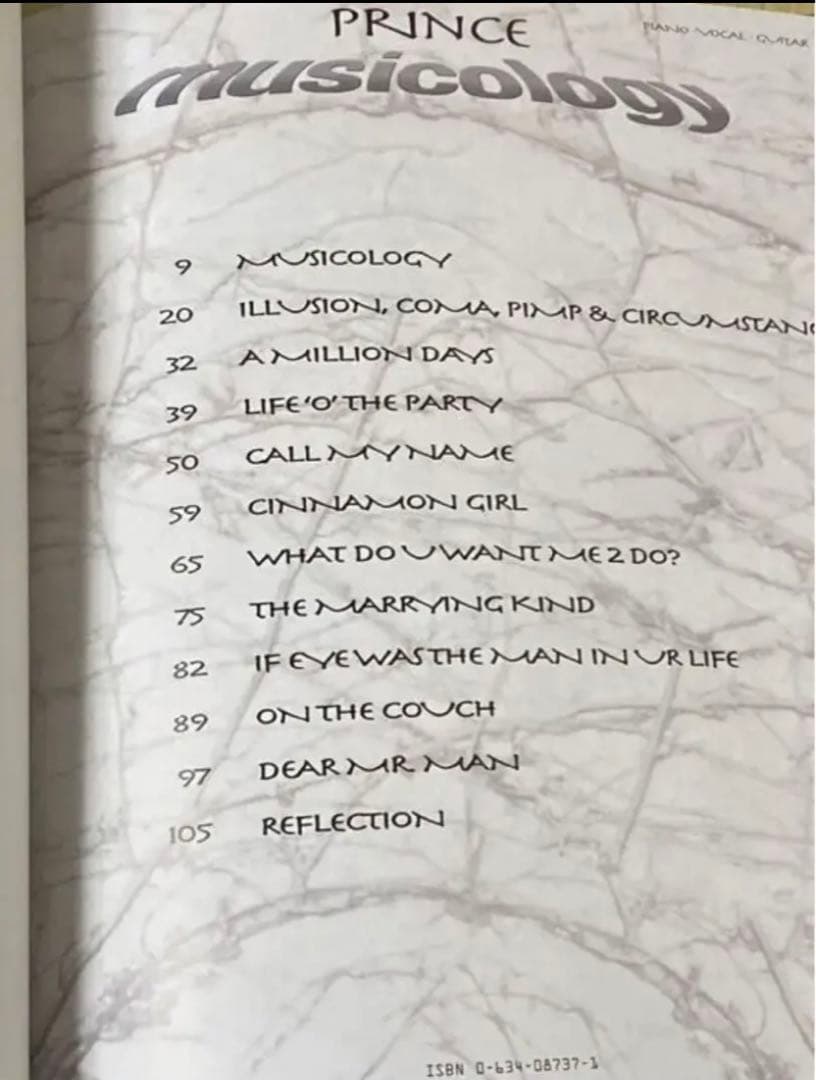 PRINCE
PIANO VOCAL GUITAR
musicology
9 MUSICOLOGY
20 ILLUSION, COMA, PIMP & CIRCUMSTANC
32 A MILLION DAYS
39 LIFE 'O' THE PARTY
50 CALL MY NAME
59 CINNAMON GIRL
65 WHAT DO U WANT ME 2 DO?
75 THE MARRYING KIND
82 IF EYE WAS THE MAN IN UR LIFE
89 ON THE COUCH
97 DEAR MR MAN
105 REFLECTION
ISBN 0-634-08737-1